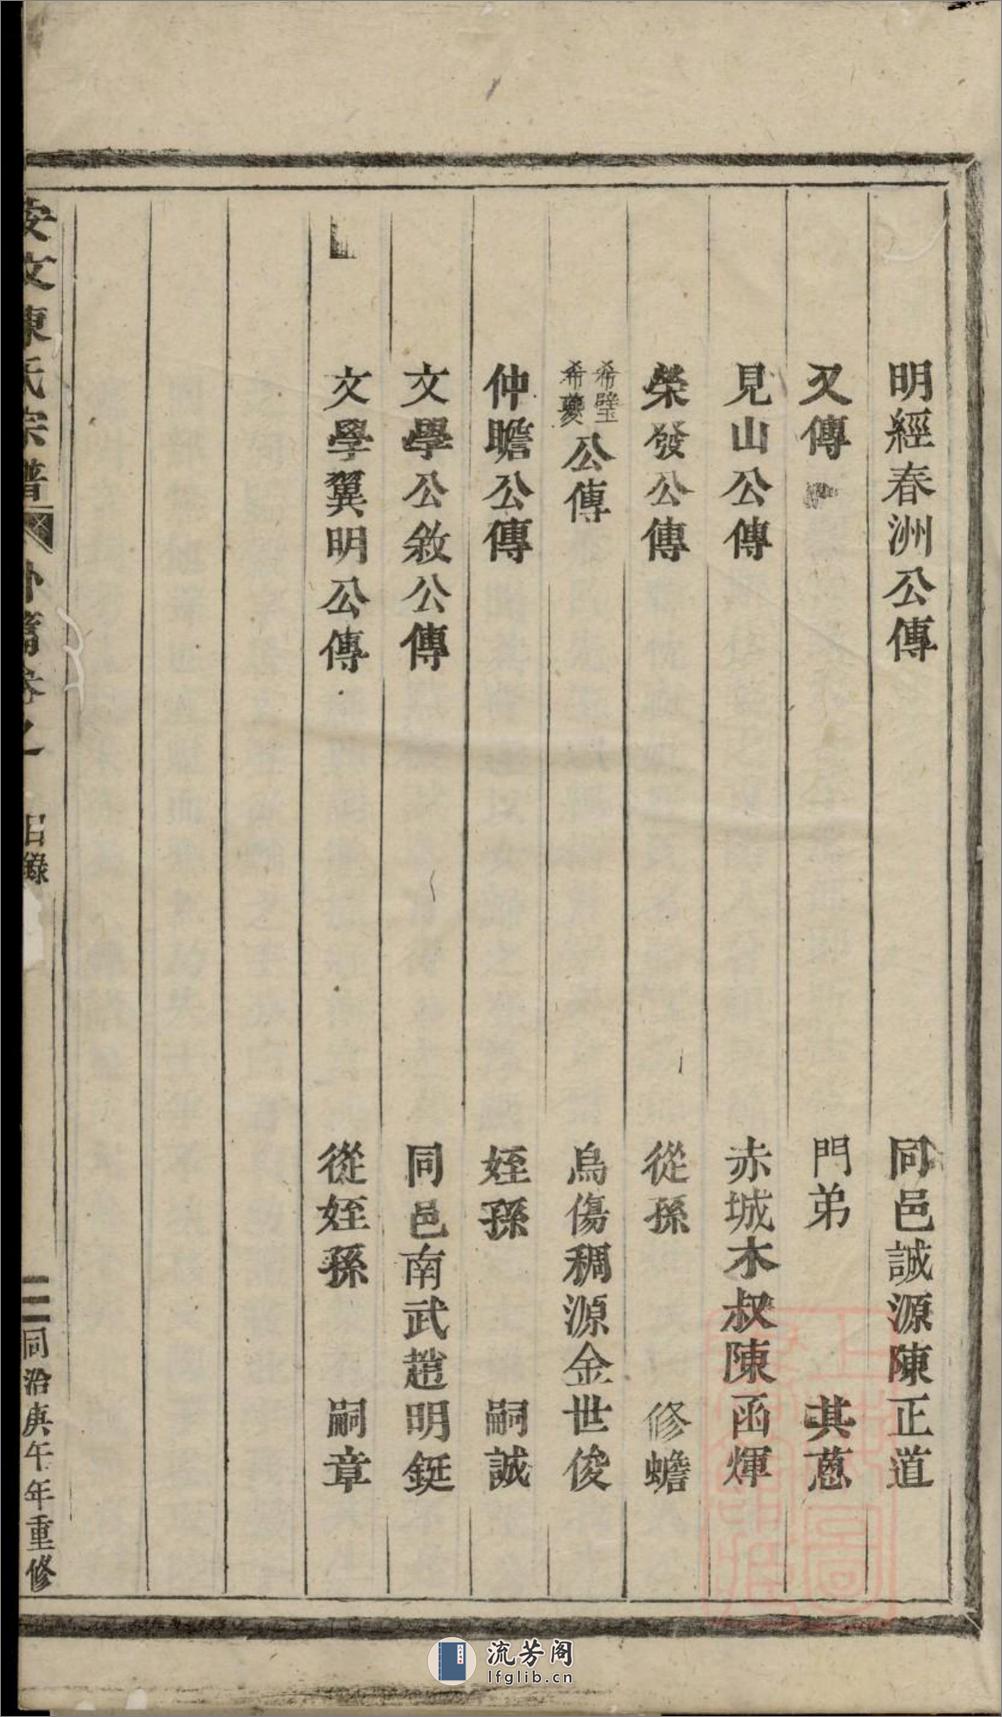 明經春洲公傳 同邑誠源陳正道
又傳 門弟 其蒽
見山公傳 赤城木叔陳函煇
榮發公傳 從孫 修蟾
希璧希夔公傳 烏傷稠源金世俊
仲瞻公傳 姪孫 嗣誠
文學公敘公傳 同邑南武趙明鋌
文學翼明公傳 從姪孫 嗣章
安文陳氏宗譜 外篇卷之一 目錄 三 同治庚午年重修
流芳阁
lfglib.cn